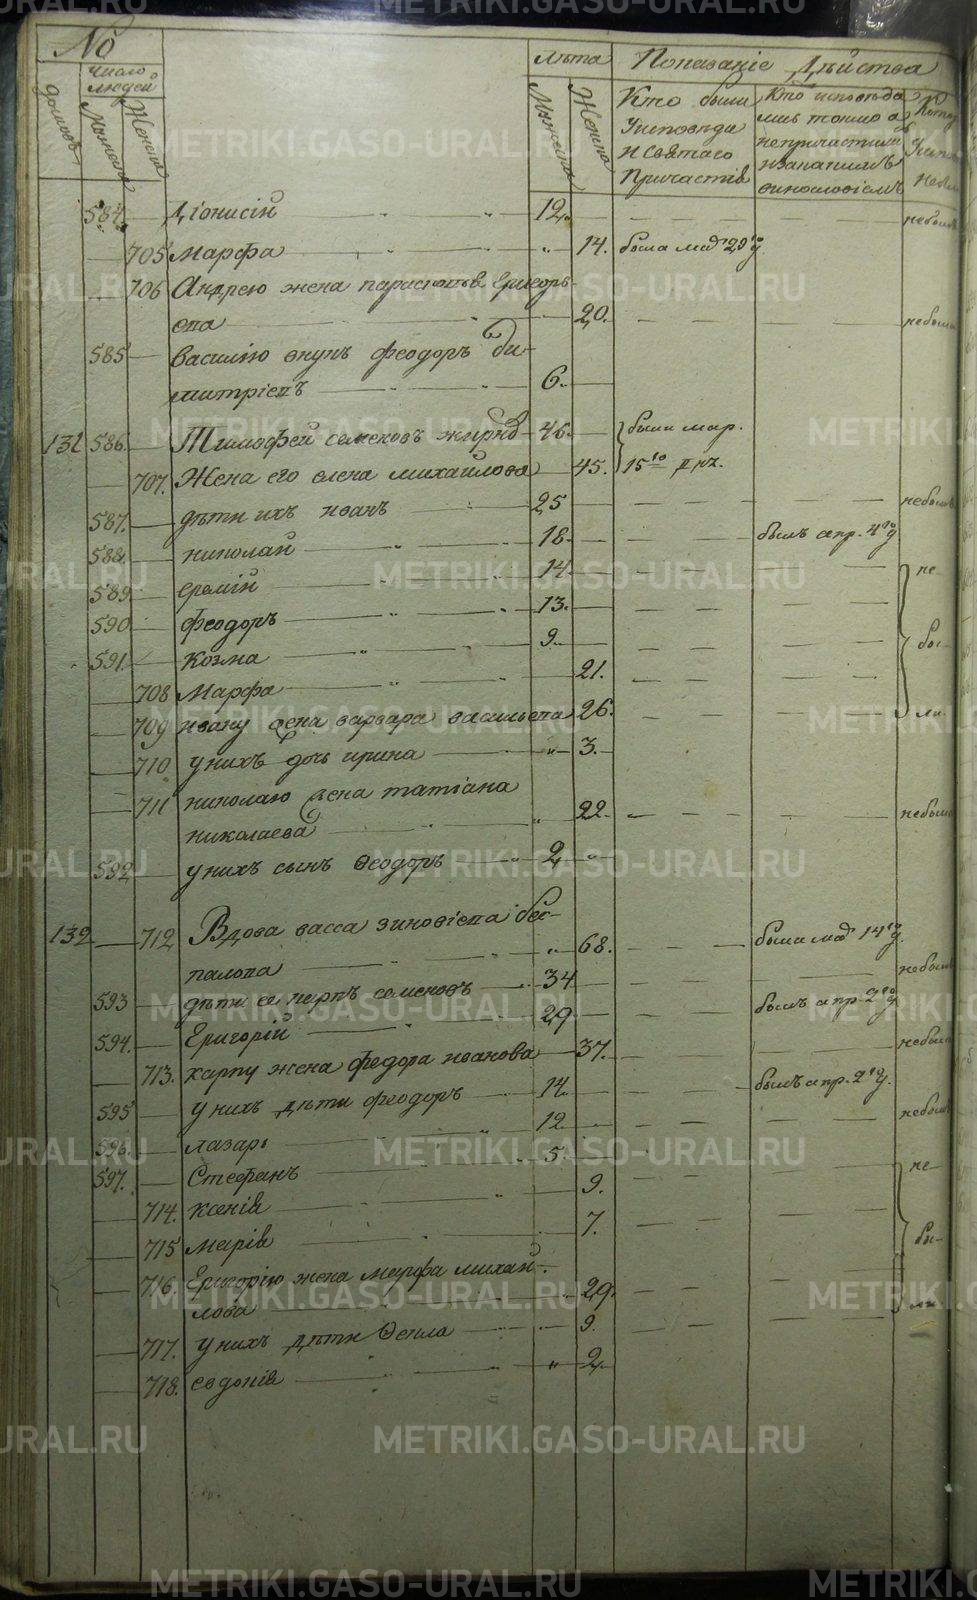 №
Число людей
Лѣта
Показаніе Дѣйства
домовъ
Мужеска
Женска
Мужеска
Женска
Кто были
У исповѣди
И Святаго
Причастія
Кто исповѣда
лись токмо а
непричастили
и заканимъ
винословіемъ
584. — Діонисій — " — " — 12. — небылъ
705 Марфа — " — " — 14. была мар 29го д.
706 Андрею жена Григорь
ева — 20. — небыла
585 — Василію внукъ Феодоръ Ди-
митріевъ — " — " — 6. —
131 586 — Тимофей Семеновъ — 46. — были мар.
707. Жена его Елена Михайлова — 45. 15го
587. — дѣти ихъ Иванъ — 25 — небылъ
588. — Николай — " — " — 18. — былъ апр. 4го д
589 — Еремій — " — " — 14. — не
590 — Феодоръ — " — " — 13. —
591. — Козма — " — " — 9. — бы-
708 Марфа — " — " — 21.
709 Ивану жена Варвара Васильева 26. — ли
710 У нихъ дочь Ирина — " — 3.
711 Николаю жена Татіана
Николаева — " — " — 22. — небыла
592 — У нихъ сынъ Ѳеодоръ — " — 2 "
132 — 712 Вдова Васса Зиновіева Бес-
палова — " — " — 68. — была мар 14го д.
593 — дѣти ея Карпъ Семеновъ — 34 — небылъ
594. — Григорій — " — 29 — былъ апр. 2го д
713. Карпу жена Федора Иванова — 37. — небыла
595 — У нихъ дѣти Феодоръ — 14. — былъ апр. 2го д.
596. — Лазарь — " — 12 — небылъ
597. — Стефанъ — " — 5. — не
714. Ксенія — " — 9.
715 Марія — " — 7. — бы-
716. Григорію жена Марфа Михай-
лова — " — 29. — ли
717. У нихъ дѣти Ѳекла — " — 9.
718. Евдокія — " — " — 2
METRIKI.GASO-URAL.RU